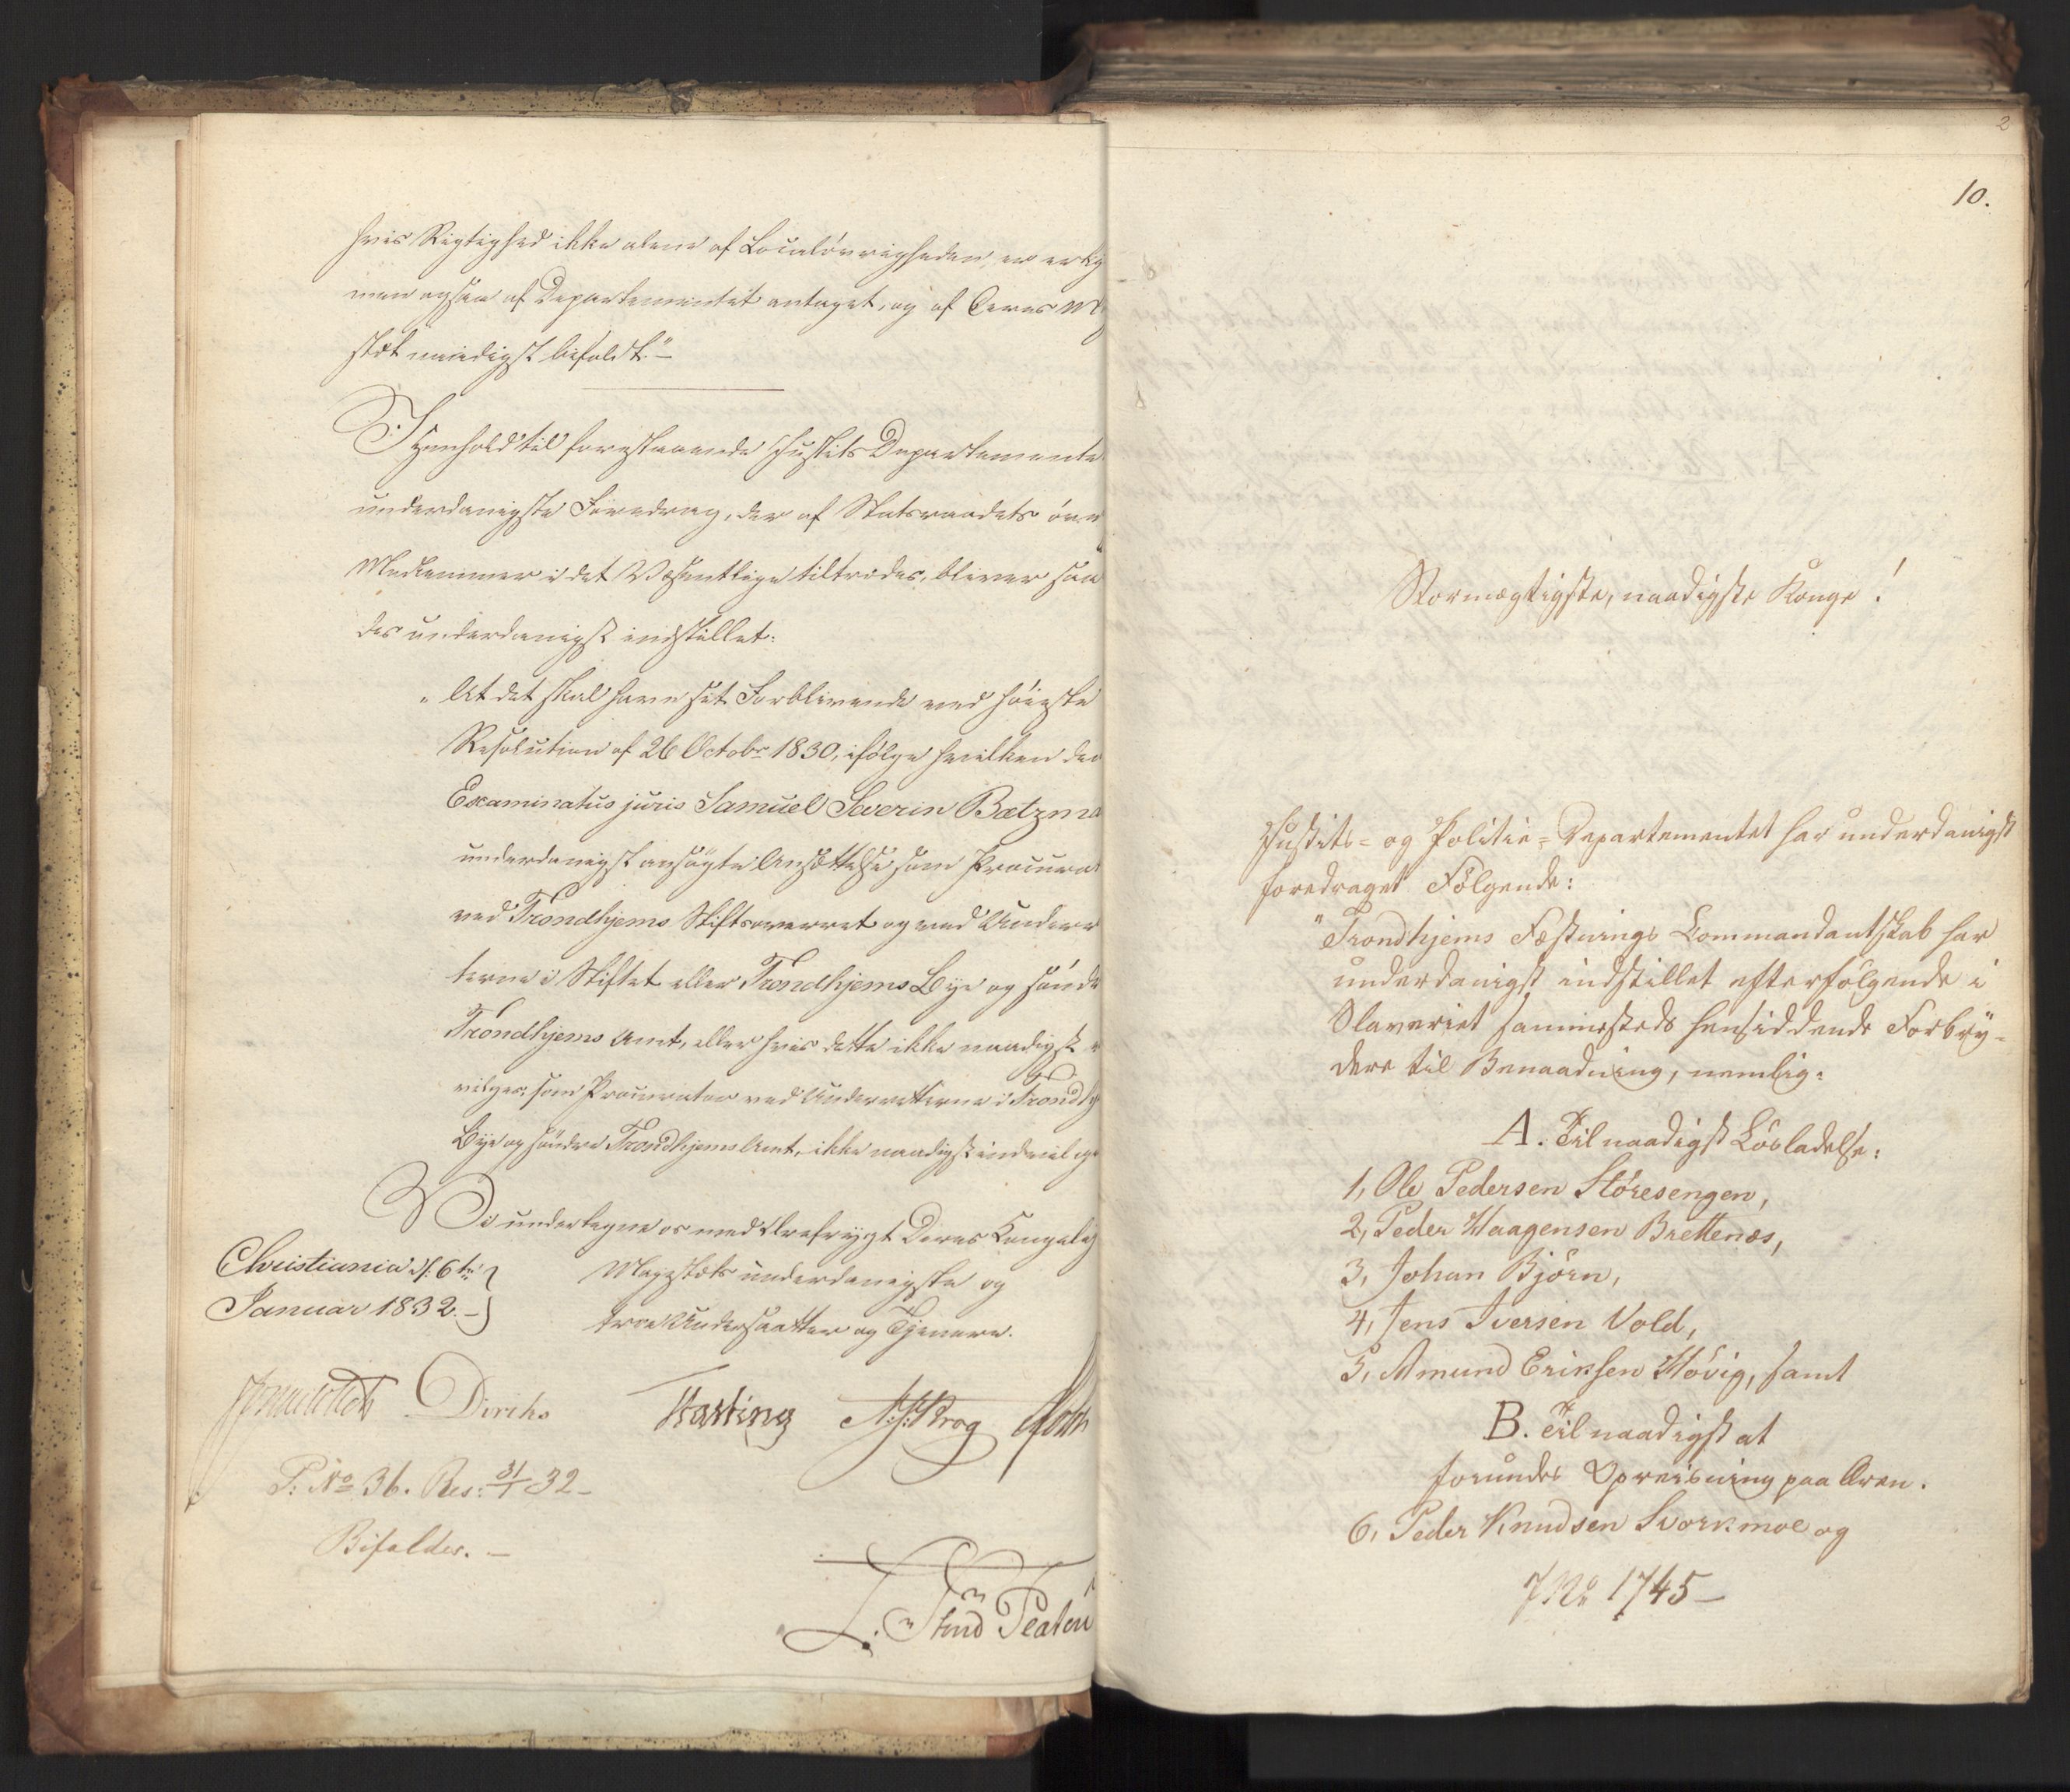 hvis Rigtighed ikke alene af Localövrigheden er erkj
men ogsaa af Departementet antaget, og af Deres M
stæt naadigst bifaldt."-
I Henhold til foranstaaende Justits Departements
underdanigste Foredrag, der af Statsraadets övr
Medlemmer i det Væsentlige tiltrædes, bliver saa
des underdanigst indstillet:
"At det skal have sit Forblivende ved höieste
Resolution af 26 Octobr 1830, ifölge hvilken den
Examinatus juris Samuel Severin Bætzma
underdanigst ansögte Ansættelse som Procurat
ved Trondhjems Stiftsoverret og ved Underr
terne i Stiftet eller Trondhjems Bye og söndr
Trondhjems Amt, eller hvis dette ikke naadigst
vilges, som Procurator ved Underretterne i Trondhj
Bye og söndre Trondhjems Amt, ikke naadigst indvilge
Vi undertegne os med Ærefrygt Deres Kongelig
Christiania d: 6te
Januar 1832.-
Majestæts underdanigste og
troe Undersaatter og Tjenere.
Diriks
P: No 36. Res: 31/1 32-
Bifaldes. -
2
10.
Stormægtigste, naadigste Konge!
Justits- og Politie-Departementet har underdanigst
foredraget Fölgende:
"Trondhjems Fæstnings Commandantskab har
underdanigst indstillet efterfölgende i
Slaveriet sammesteds hensiddende Forbry-
dere til Benaadning, nemlig:
A. Til naadigst Lösladelse:
1, Ole Pedersen Störesengen,
2, Peder Haagensen Brettenæs,
3, Johan Björn,
4, Jens Iversen Vold,
5, Amund Eriksen Hövig, samt
B. Til naadigst at
forundes Opreisning paa Æren.
6, Peder Knudsen Svorkmoe og
JNo 1745-